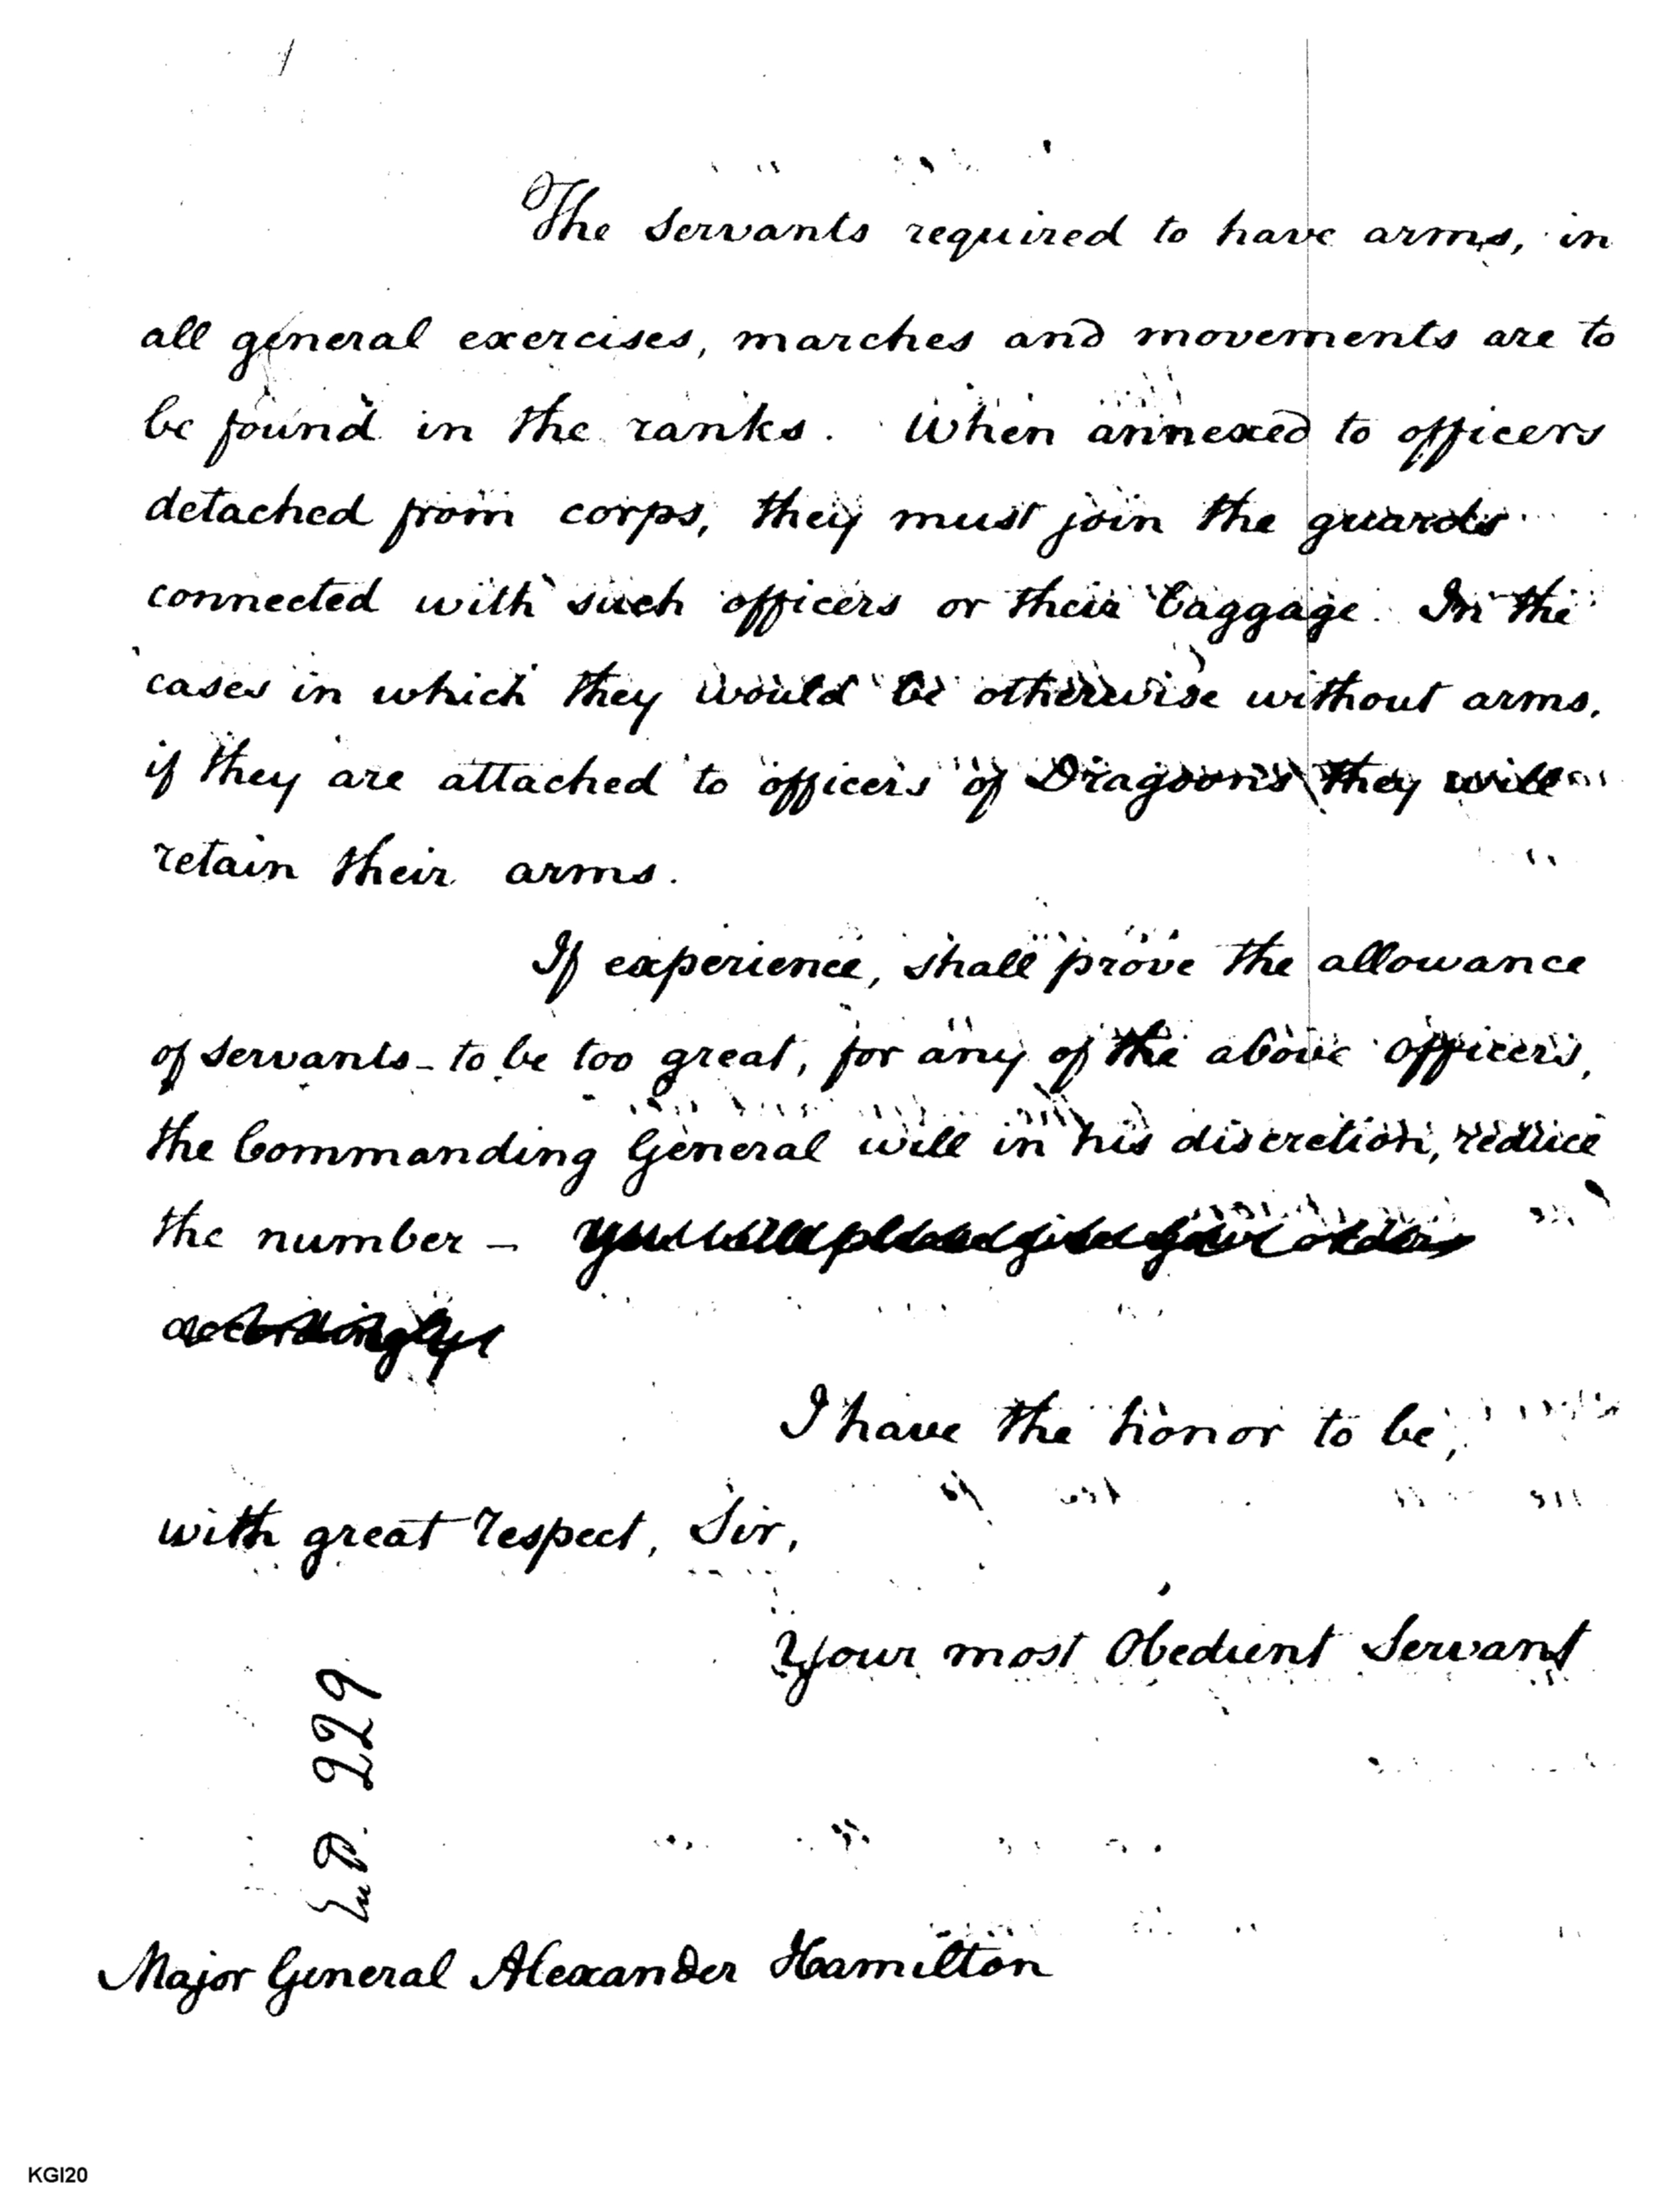 The Servants required to have arms, in
all general exercises, marches and movements are to
be found in the ranks. When annexed to officers
detached from corps, they must join the guards
connected with such officers or their baggage. In the
cases in which they would be otherwise without arms,
if they are attached to officers of Dragoons they will
retain their arms.
If experience, shall prove the allowance
of servants - to be too great, for any of the above officers,
the Commanding General will in his discretion, reduce
the number - you will please give your orders
accordingly
I have the honor to be,
with great respect, Sir,
Your most Obedient Servant
229
Major General Alexander Hamilton
KGI20